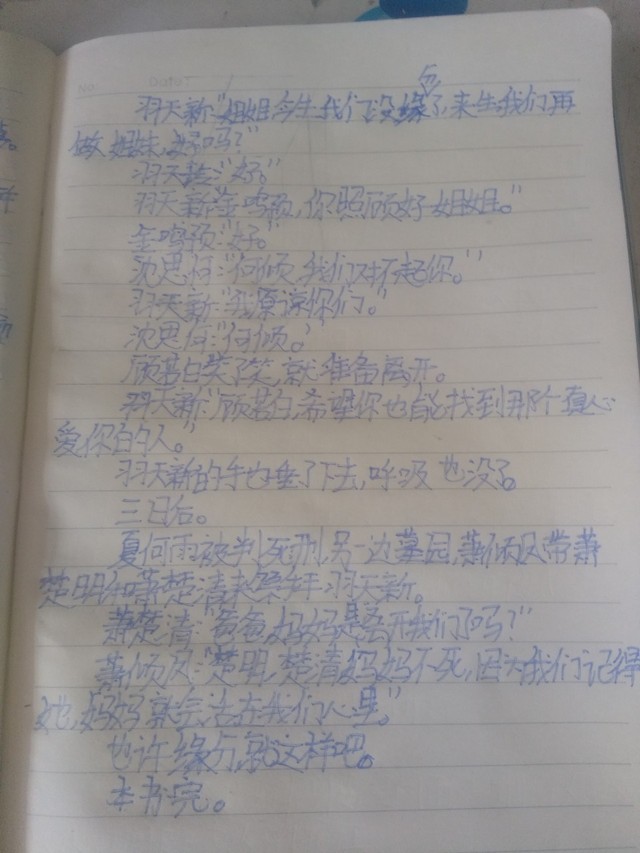 羽天新:"姐姐今生我们没缘分了,来生我们再
做姐妹,好吗?"
羽天:"好。"
羽天新:"金鸣预,你照顾好姐姐。"
金鸣预:"好。"
沈思何:"何倾,我们对不起你。"
羽天新:"我原谅你们。"
沈思何:"何倾。"
顾若白笑了笑,就准备离开。
羽天新:"顾若白,希望你也能找到那个真心
爱你的人。"
羽天新的手也垂了下去,呼吸也没了。
三日后。
夏何雨被判死刑,另一边墓园,萧倾风带萧
楚明和萧楚清来祭拜羽天新。
萧楚清:"爸爸,妈妈是离开我们了吗?"
萧倾风:"楚明,楚清妈妈不死,因为我们记得
她,妈妈就会活在我们心里。"
也许缘分,就这样吧。
本书完。